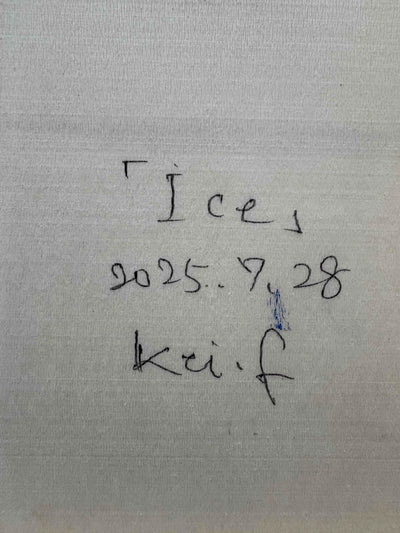 「Ice」
2025.7.28
Kei.f